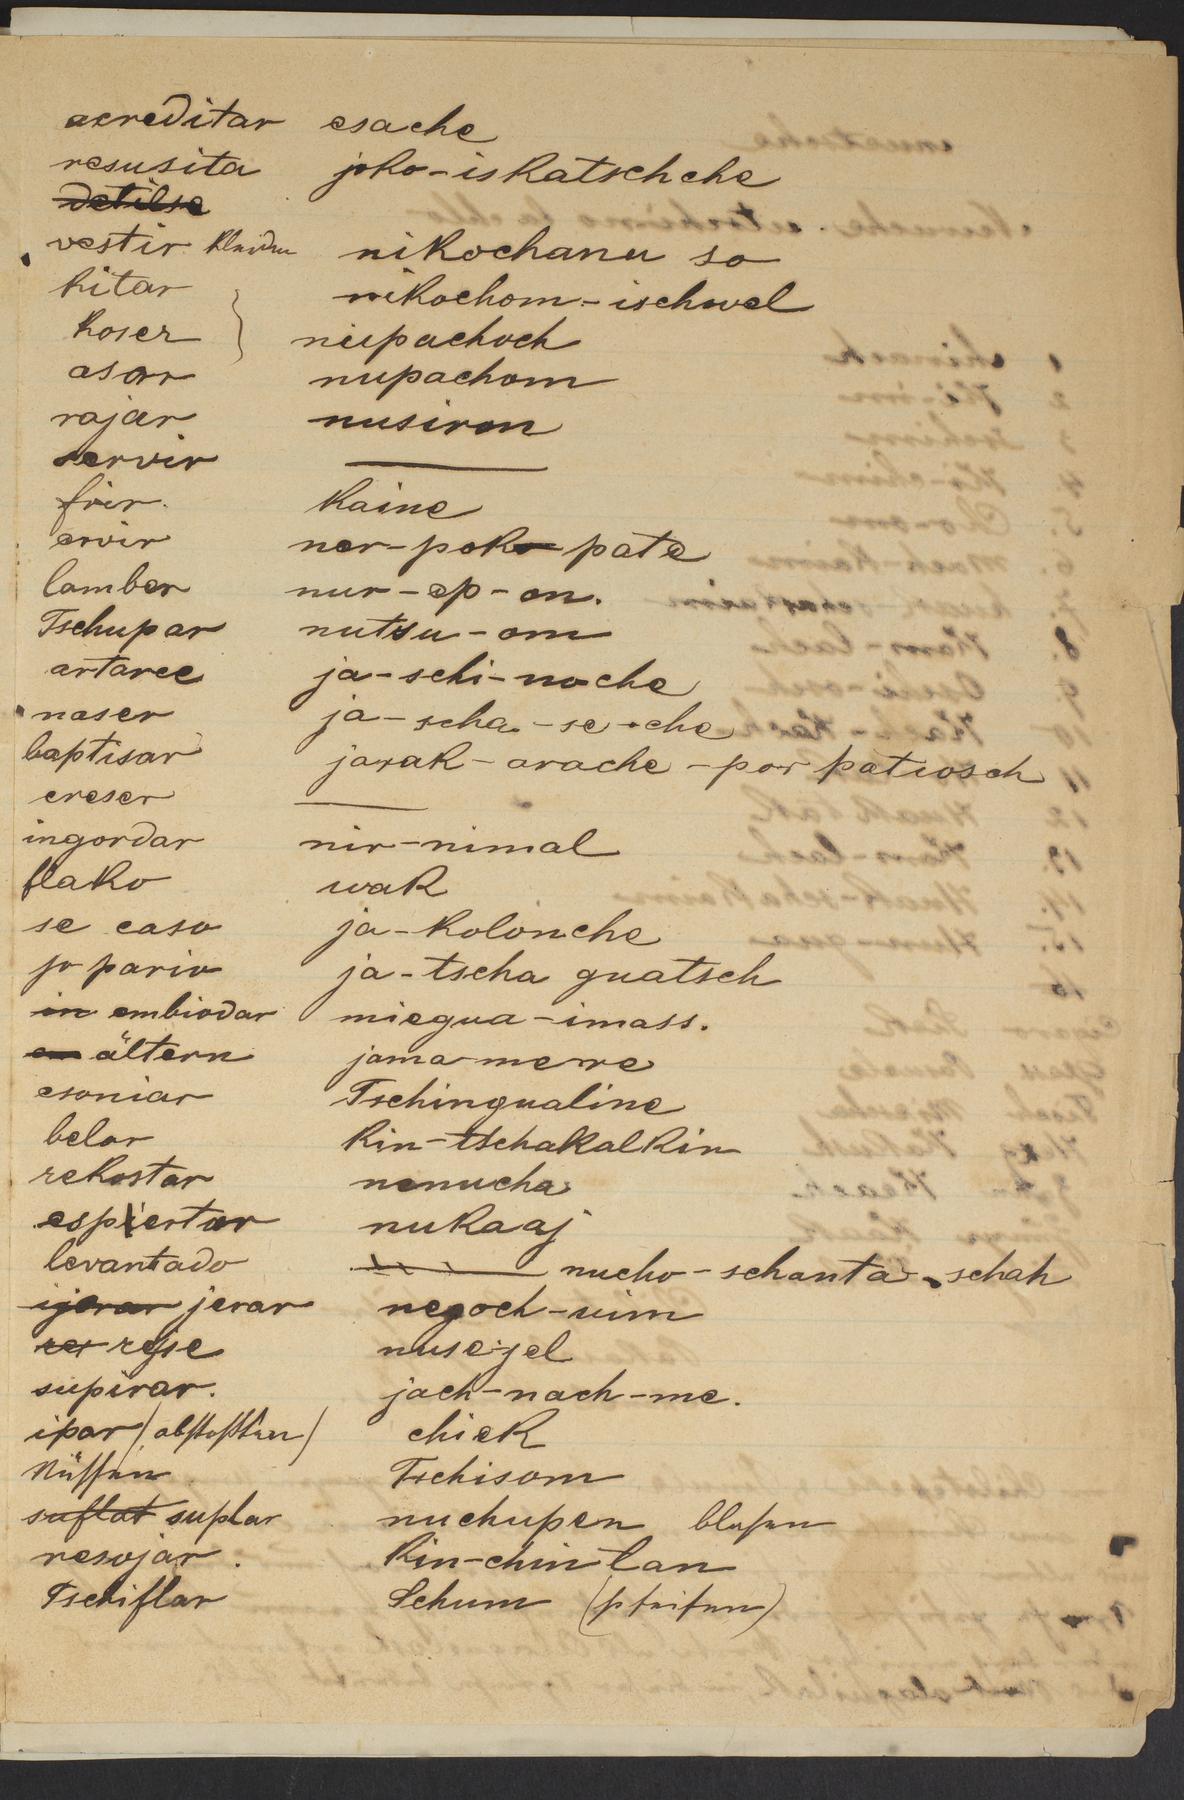 acreditar esache
resusita joko-iskatschche
detilse
vestir kleiden nikochanu so
kitar nikochom-ischwel
koser } neipachoch
asar nupachom
rajar nusiron
servir —
frir. kaine
ervir ner-poko pate
lamber nur-ep-on.
Tschupar nutsu-om
artaree ja-schi-noche
naser ja-scha-se-che
baptisar jarak-arache-por patiosch
creser —
ingordar nir-nimal
flako wak
se caso ja-kolonche
jo pario ja-tscha guatsch
in embiodar miegua-imass.
en ältern jama mere
esoniar Tschingualine
belar kin-tschakalkin
rekostar nenucha
espiertar nukaaj
levantado nucho-schanta-schah
ijerar jerar negoch-uim
res rejse nuse-jel
supirar. jach-nach-me.
ipar (abstoßen) chiek
küssen Tschisom
suflat suplar nuchupen blasen
resojar. kin-chin tan
Tschiflar Schum (pfeifen)